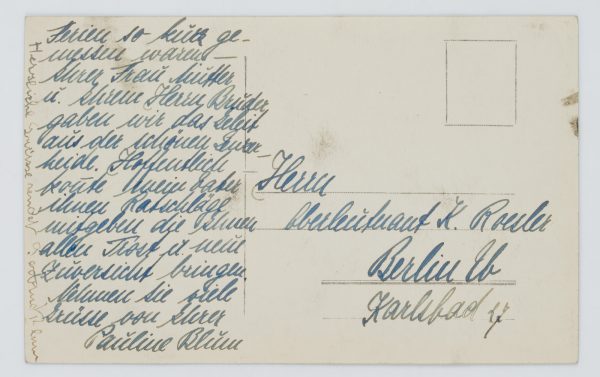 Ferien so kurz ge-
messen waren –
Ihrer Frau Mutter
u. Ihrem Herrn Bruder
gaben wir das Geleit
aus der schönen
heide. Hoffentlich
konnte mein Vater
Ihnen Ratschläge
mitgeben die Ihnen
allen Trost u. neue
Zuversicht bringen.
Nehmen Sie viele
Grüsse von Ihrer
Pauline Blum
Herrn
Oberleutnant K. Roesler
Berlin W
Karlsbad 27
Herzliche Grüsse sendet